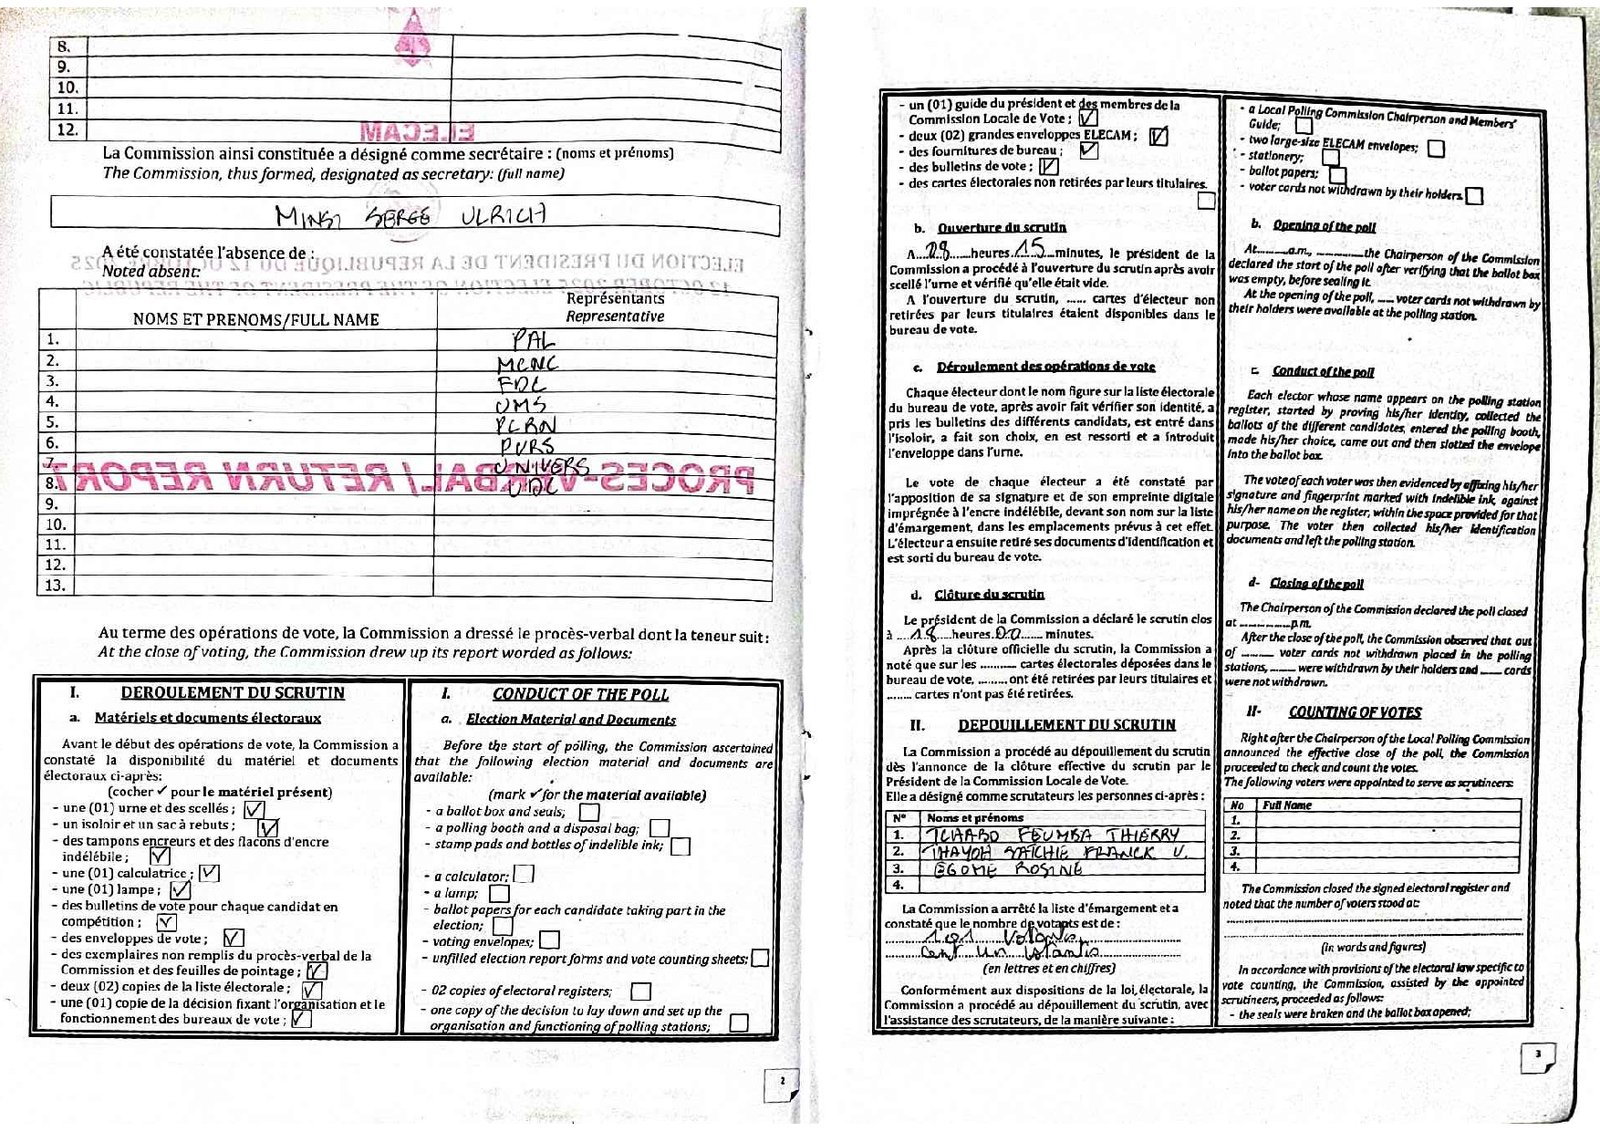 8.
9.
10.
11.
12.
ELECAM
La Commission ainsi constituée a désigné comme secrétaire : (noms et prénoms)
The Commission, thus formed, designated as secretary: (full name)
MINSI SERGE ULRICH
A été constatée l'absence de :
Noted absent:
ELECTION DU PRESIDENT DE LA REPUBLIQUE DU 12 OCTOBRE 2025
12 OCTOBER 2025 ELECTION OF THE PRESIDENT OF THE REPUBLIC
NOMS ET PRENOMS/FULL NAME
Représentants
Representative
1. PAL
2. MCNC
3. FDC
4. UMS
5. PCRN
6. PURS
7. UNIVERS
PROCES-VERBAL / RETURN REPORT
8. UDC
9.
10.
11.
12.
13.
Au terme des opérations de vote, la Commission a dressé le procès-verbal dont la teneur suit :
At the close of voting, the Commission drew up its report worded as follows:
I. DEROULEMENT DU SCRUTIN
a. Matériels et documents électoraux
Avant le début des opérations de vote, la Commission a
constaté la disponibilité du matériel et documents
électoraux ci-après:
(cocher ✓ pour le matériel présent)
- une (01) urne et des scellés ; ☑
- un isoloir et un sac à rebuts ; ☑
- des tampons encreurs et des flacons d'encre
indélébile ; ☑
- une (01) calculatrice ; ☑
- une (01) lampe ; ☑
- des bulletins de vote pour chaque candidat en
compétition ; ☑
- des enveloppes de vote ; ☑
- des exemplaires non remplis du procès-verbal de la
Commission et des feuilles de pointage ; ☑
- deux (02) copies de la liste électorale ; ☑
- une (01) copie de la décision fixant l'organisation et le
fonctionnement des bureaux de vote ; ☑
I. CONDUCT OF THE POLL
a. Election Material and Documents
Before the start of polling, the Commission ascertained
that the following election material and documents are
available:
(mark ✓ for the material available)
- a ballot box and seals; ☐
- a polling booth and a disposal bag; ☐
- stamp pads and bottles of indelible ink; ☐
- a calculator; ☐
- a lamp; ☐
- ballot papers for each candidate taking part in the
election; ☐
- voting envelopes; ☐
- unfilled election report forms and vote counting sheets; ☐
- 02 copies of electoral registers; ☐
- one copy of the decision to lay down and set up the
organisation and functioning of polling stations; ☐
2
- un (01) guide du président et des membres de la
Commission Locale de Vote ; ☑
- deux (02) grandes enveloppes ELECAM ; ☑
- des fournitures de bureau ; ☑
- des bulletins de vote ; ☑
- des cartes électorales non retirées par leurs titulaires.
☐
b. Ouverture du scrutin
A....08....heures.15...minutes, le président de la
Commission a procédé à l'ouverture du scrutin après avoir
scellé l'urne et vérifié qu'elle était vide.
A l'ouverture du scrutin, ...... cartes d'électeur non
retirées par leurs titulaires étaient disponibles dans le
bureau de vote.
c. Déroulement des opérations de vote
Chaque électeur dont le nom figure sur la liste électorale
du bureau de vote, après avoir fait vérifier son identité, a
pris les bulletins des différents candidats, est entré dans
l'isoloir, a fait son choix, en est ressorti et a introduit
l'enveloppe dans l'urne.
Le vote de chaque électeur a été constaté par
l'apposition de sa signature et de son empreinte digitale
imprégnée à l'encre indélébile, devant son nom sur la liste
d'émargement, dans les emplacements prévus à cet effet.
L'électeur a ensuite retiré ses documents d'identification et
est sorti du bureau de vote.
d. Clôture du scrutin
Le président de la Commission a déclaré le scrutin clos
à ...18...heures.00...... minutes.
Après la clôture officielle du scrutin, la Commission a
noté que sur les .......... cartes électorales déposées dans le
bureau de vote, ......... ont été retirées par leurs titulaires et
........ cartes n'ont pas été retirées.
II. DEPOUILLEMENT DU SCRUTIN
La Commission a procédé au dépouillement du scrutin
dès l'annonce de la clôture effective du scrutin par le
Président de la Commission Locale de Vote.
Elle a désigné comme scrutateurs les personnes ci-après :
N° Noms et prénoms
1. TCHABO FEUMBA THIERRY
2. FRANCK U.
3. EGOME ROSINE
4.
La Commission a arrêté la liste d'émargement et a
constaté que le nombre de votants est de :
101 Votants
cent un votants
(en lettres et en chiffres)
Conformément aux dispositions de la loi électorale, la
Commission a procédé au dépouillement du scrutin, avec
l'assistance des scrutateurs, de la manière suivante :
- a Local Polling Commission Chairperson and Members'
Guide; ☐
- two large-size ELECAM envelopes; ☐
- stationery; ☐
- ballot papers; ☐
- voter cards not withdrawn by their holders. ☐
b. Opening of the poll
At........a.m, ............the Chairperson of the Commission
declared the start of the poll after verifying that the ballot box
was empty, before sealing it.
At the opening of the poll, ..... voter cards not withdrawn by
their holders were available at the polling station.
c. Conduct of the poll
Each elector whose name appears on the polling station
register, started by proving his/her identity, collected the
ballots of the different candidates, entered the polling booth,
made his/her choice, came out and then slotted the envelope
into the ballot box.
The vote of each voter was then evidenced by affixing his/her
signature and fingerprint marked with indelible ink, against
his/her name on the register, within the space provided for that
purpose. The voter then collected his/her identification
documents and left the polling station.
d- Closing of the poll
The Chairperson of the Commission declared the poll closed
at ..............p.m.
After the close of the poll, the Commission observed that out
of ......... voter cards not withdrawn placed in the polling
stations, ....... were withdrawn by their holders and ...... cards
were not withdrawn.
II- COUNTING OF VOTES
Right after the Chairperson of the Local Polling Commission
announced the effective close of the poll, the Commission
proceeded to check and count the votes.
The following voters were appointed to serve as scrutineers:
No Full Name
1.
2.
3.
4.
The Commission closed the signed electoral register and
noted that the number of voters stood at:
(in words and figures)
In accordance with provisions of the electoral law specific to
vote counting, the Commission, assisted by the appointed
scrutineers, proceeded as follows:
- the seals were broken and the ballot box opened;
3